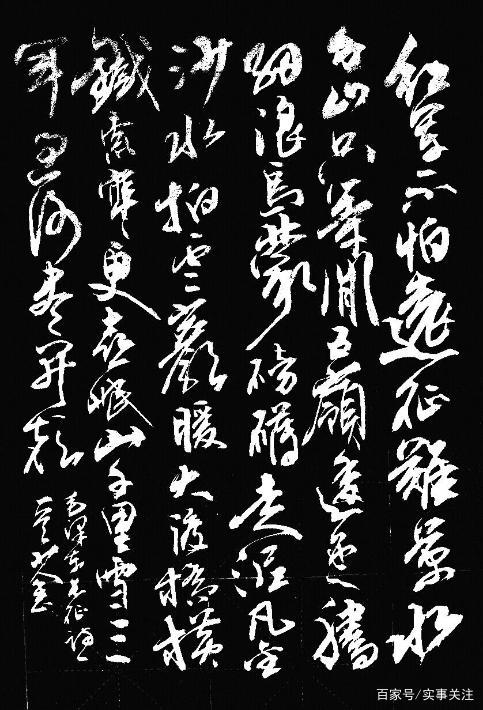 红军不怕遠征難万水
千山只等闲五嶺逶迤腾
细浪烏蒙磅礴走泥丸金
沙水拍云巖暖大渡橋横
鐵索寒更喜岷山千里雪三
军過后尽开颜
毛泽东长征诗一
百家号/实事关注